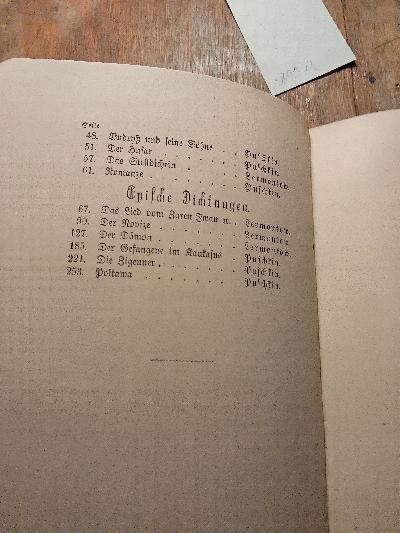 Seite
48. Budryß und seine Söhne . . Puschkin.
51. Der Husar . . . . . . Puschkin.
57. Das Stelldichein . . . . Puschkin.
61. Romanze . . . . . . Lermontow.
Puschkin.
Epische Dichtungen.
67. Das Lied vom Zaren Iwan ꝛc. . Lermontow.
90. Der Novize . . . . . . Lermontow.
127. Der Dämon . . . . . . Lermontow.
185. Der Gefangene im Kaukasus Puschkin.
221. Die Zigeuner . . . . . . Puschkin.
253. Poltawa . . . . . . . Puschkin.